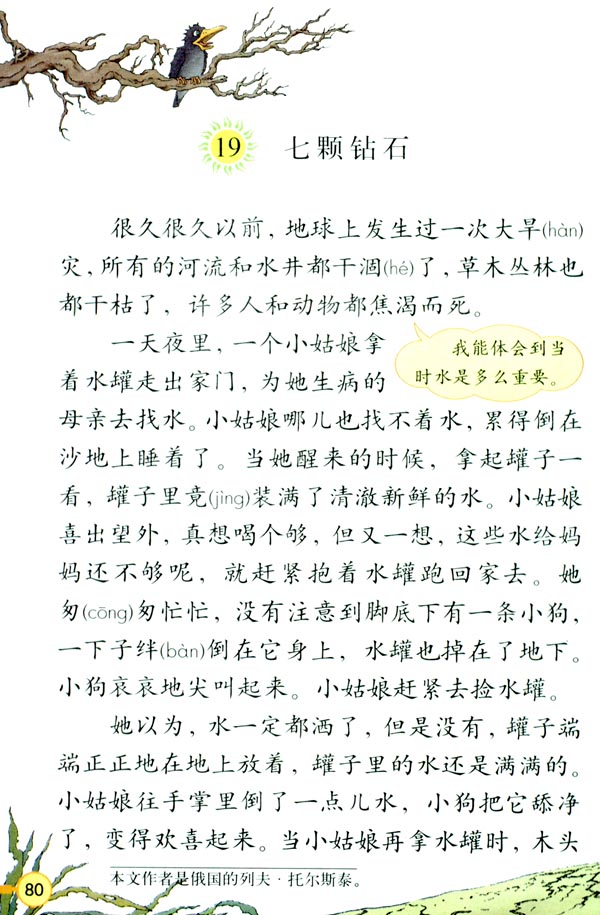 19 七颗钻石
很久很久以前，地球上发生过一次大旱(hàn)
灾，所有的河流和水井都干涸(hé)了，草木丛林也
都干枯了，许多人和动物都焦渴而死。
一天夜里，一个小姑娘拿
着水罐走出家门，为她生病的
我能体会到当
时水是多么重要。
母亲去找水。小姑娘哪儿也找不着水，累得倒在
沙地上睡着了。当她醒来的时候，拿起罐子一
看，罐子里竟(jìng)装满了清澈新鲜的水。小姑娘
喜出望外，真想喝个够，但又一想，这些水给妈
妈还不够呢，就赶紧抱着水罐跑回家去。她
匆(cōng)匆忙忙，没有注意到脚底下有一条小狗，
一下子绊(bàn)倒在它身上，水罐也掉在了地下。
小狗哀哀地尖叫起来。小姑娘赶紧去捡水罐。
她以为，水一定都洒了，但是没有，罐子端
端正正地在地上放着，罐子里的水还是满满的。
小姑娘往手掌里倒了一点儿水，小狗把它舔净
了，变得欢喜起来。当小姑娘再拿水罐时，木头
本文作者是俄国的列夫·托尔斯泰。
80